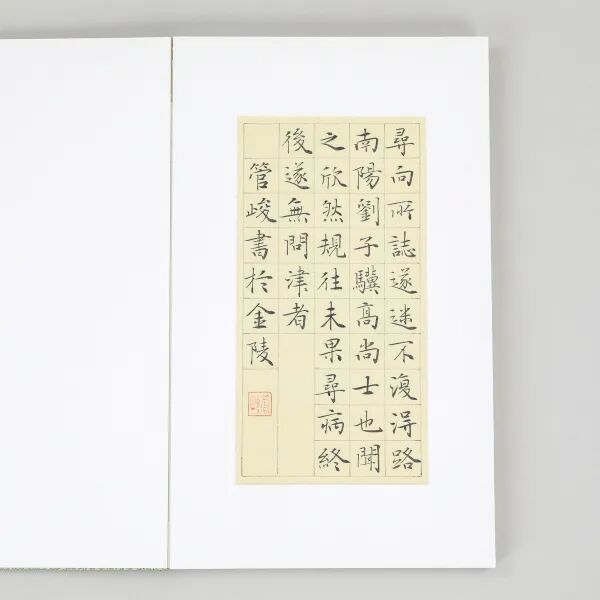 尋向所誌遂迷不復得路
南陽劉子驥高尚士也聞
之欣然規往未果尋病終
後遂無問津者
管峻書於金陵